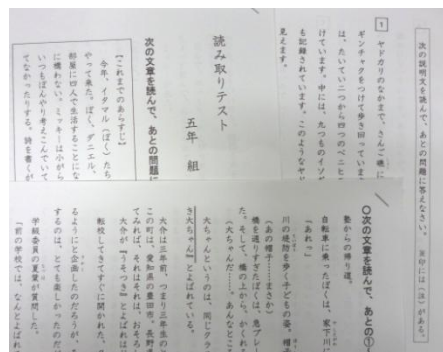 次の説明文を読んで、あとの問題に答えなさい。
※印には(注)がある。
1
ヤドカリのなかまで、さんご礁に
ギンチャクをつけて歩き回っていま
は、たいてい二つから四つのベニヒ
けています。中には、九つものイソギ
も記録されています。このようなヤド
見えます。
読み取りテスト
五年 組
次の文章を読んで、あとの問題に
【これまでのあらすじ】
今年、イタマル(ぼく)たち
やって来た。ぼく、ダニエル、
部屋に四人で生活することにな
に構わない。ミッキーは小がら
いつもぼんやり考えこんでいて
てなかったりする。詩を書くが
○次の文章を読んで、あとの①
塾からの帰り道。
自転車に乗ったぼくは、家下川に
「あれっ」
川の堤防を歩く子どもの姿。帽子
(あの帽子……まさか)
橋を通りすぎたぼくは、急ブレー
た。そして、橋の上から、かくれる
(大ちゃんだ……。あんなとこ
大ちゃんというのは、同じクラ
き大ちゃん』とよばれている。
大介は三年前、つまり三年生のと
この町は、愛知県の豊田市。長野
てみれば、それはそれは、おそろし
大介が『うそつき』とよばれは
転校してきてすぐに開かれた。
るようにと企画したのだろうが、
するのは、とても楽しかったのだ
学級委員の夏葉が質問した。
「前の学校では、なんとよばれ